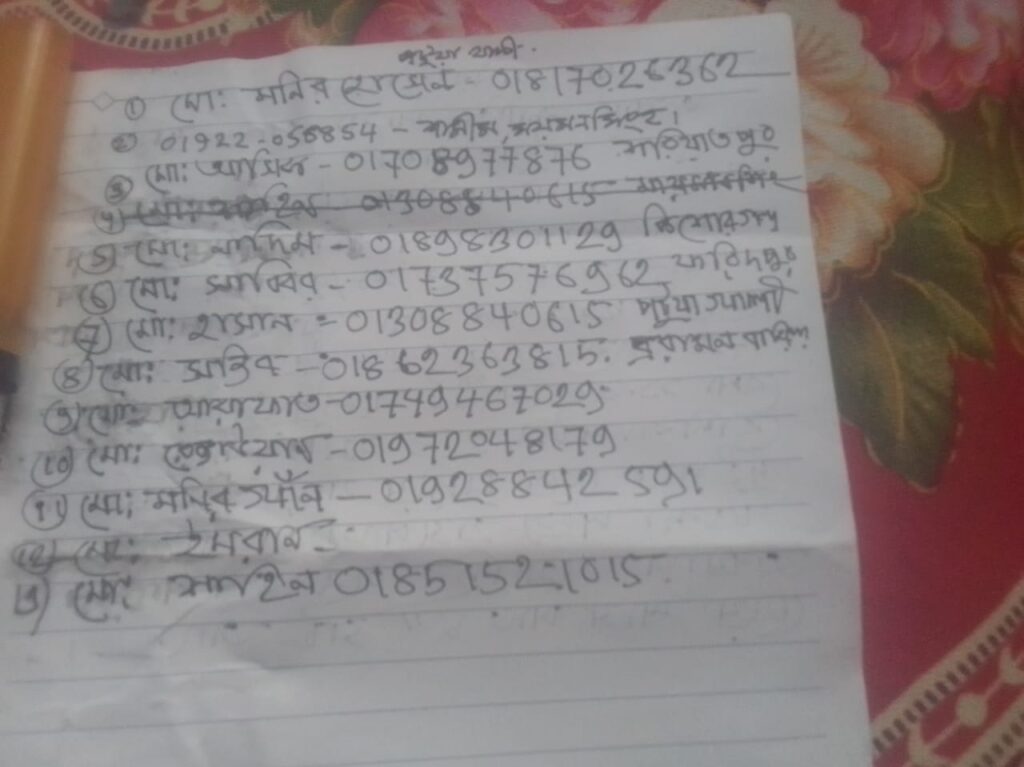 পটুয়াখালী
① মোঃ মনির হোসেন - 01817026362
② 01922-056854 - শামীম, ময়মনসিংহ।
③ মোঃ আসিক - 01708977876 শরিয়তপুর
④ মোঃ 01308840615
⑤ মোঃ নাদিম - 01898301129 কিশোরগঞ্জ
⑥ মোঃ সাব্বির - 01737576962 ফরিদপুর
⑦ মোঃ হাসান = 01308840615 পটুয়াখালী
⑧ মোঃ সাকিব - 01862363815.
⑨ মোঃ আরাফাত - 01749467029
⑩ মোঃ - 01972048179
⑪ মোঃ মনির খাঁন - 01928842591
⑫ মোঃ ইমরান -
13) মোঃ শাহিন 01851521015